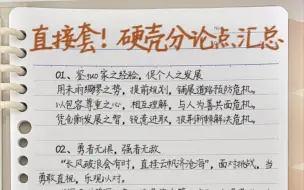 直接套！硬壳分论点汇总
01、鉴100家之经验，促个人之发展
用未雨绸缪之势，提前规划，铺展道路预防危机。
以包容尊重之心，相互理解，与人为善共面危机。
凭创新发展之智，锐意进取，披荆斩棘解决危机。
02、勇者无惧，强者无敌
“长风破浪会有时，直挂云帆济沧海”，面对挑战，当
勇敢直视，乐观以对。